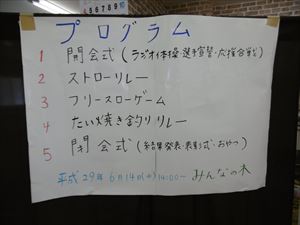 プログラム
1 開会式(ラジオ体操・選手宣誓・応援合戦)
2 ストローリレー
3 フリースローゲーム
4 たい焼き釣りリレー
5 閉会式(結果発表・表彰式・おやつ)
平成29年6月14日(水)14:00~ みんなの木